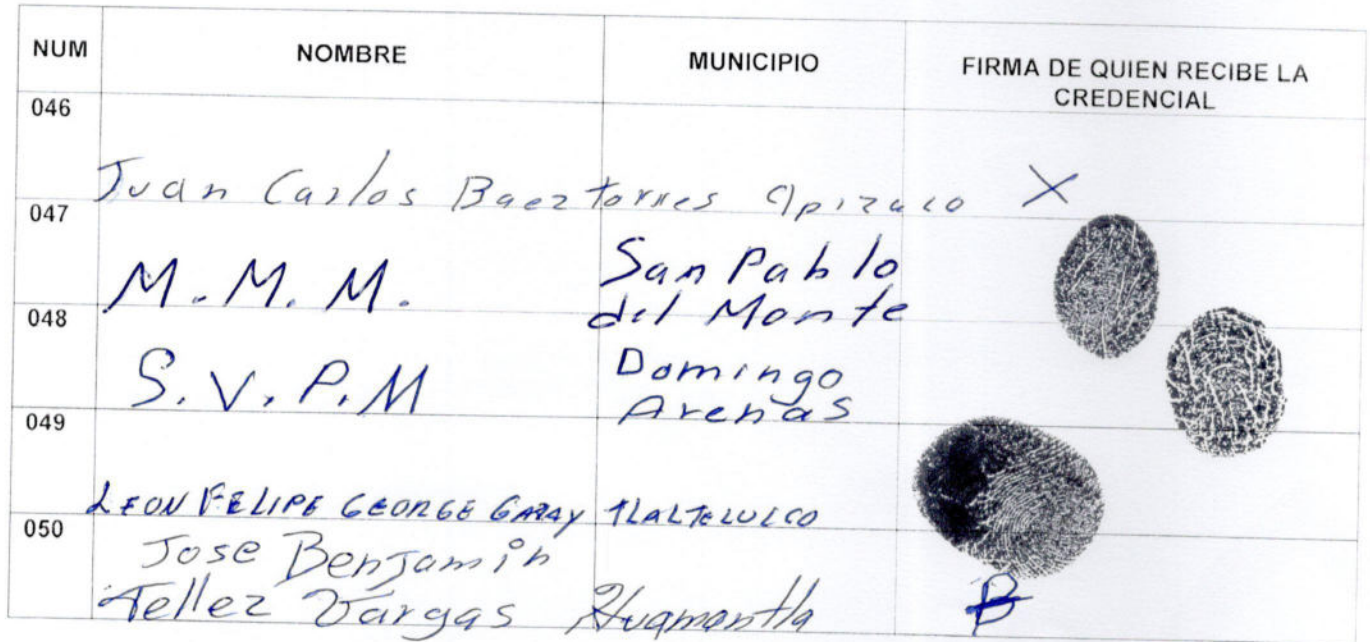 NUM NOMBRE MUNICIPIO FIRMA DE QUIEN RECIBE LA
CREDENCIAL
046
Juan Carlos Baez torres Apizaco X
047
M. M. M. San Pablo
del Monte
048
S. V. P. M Domingo
Arenas
049
LEON FELIPE GEORGE GARAY TLALTELULCO
050
Jose Benjamin
Tellez Vargas Huamantla B